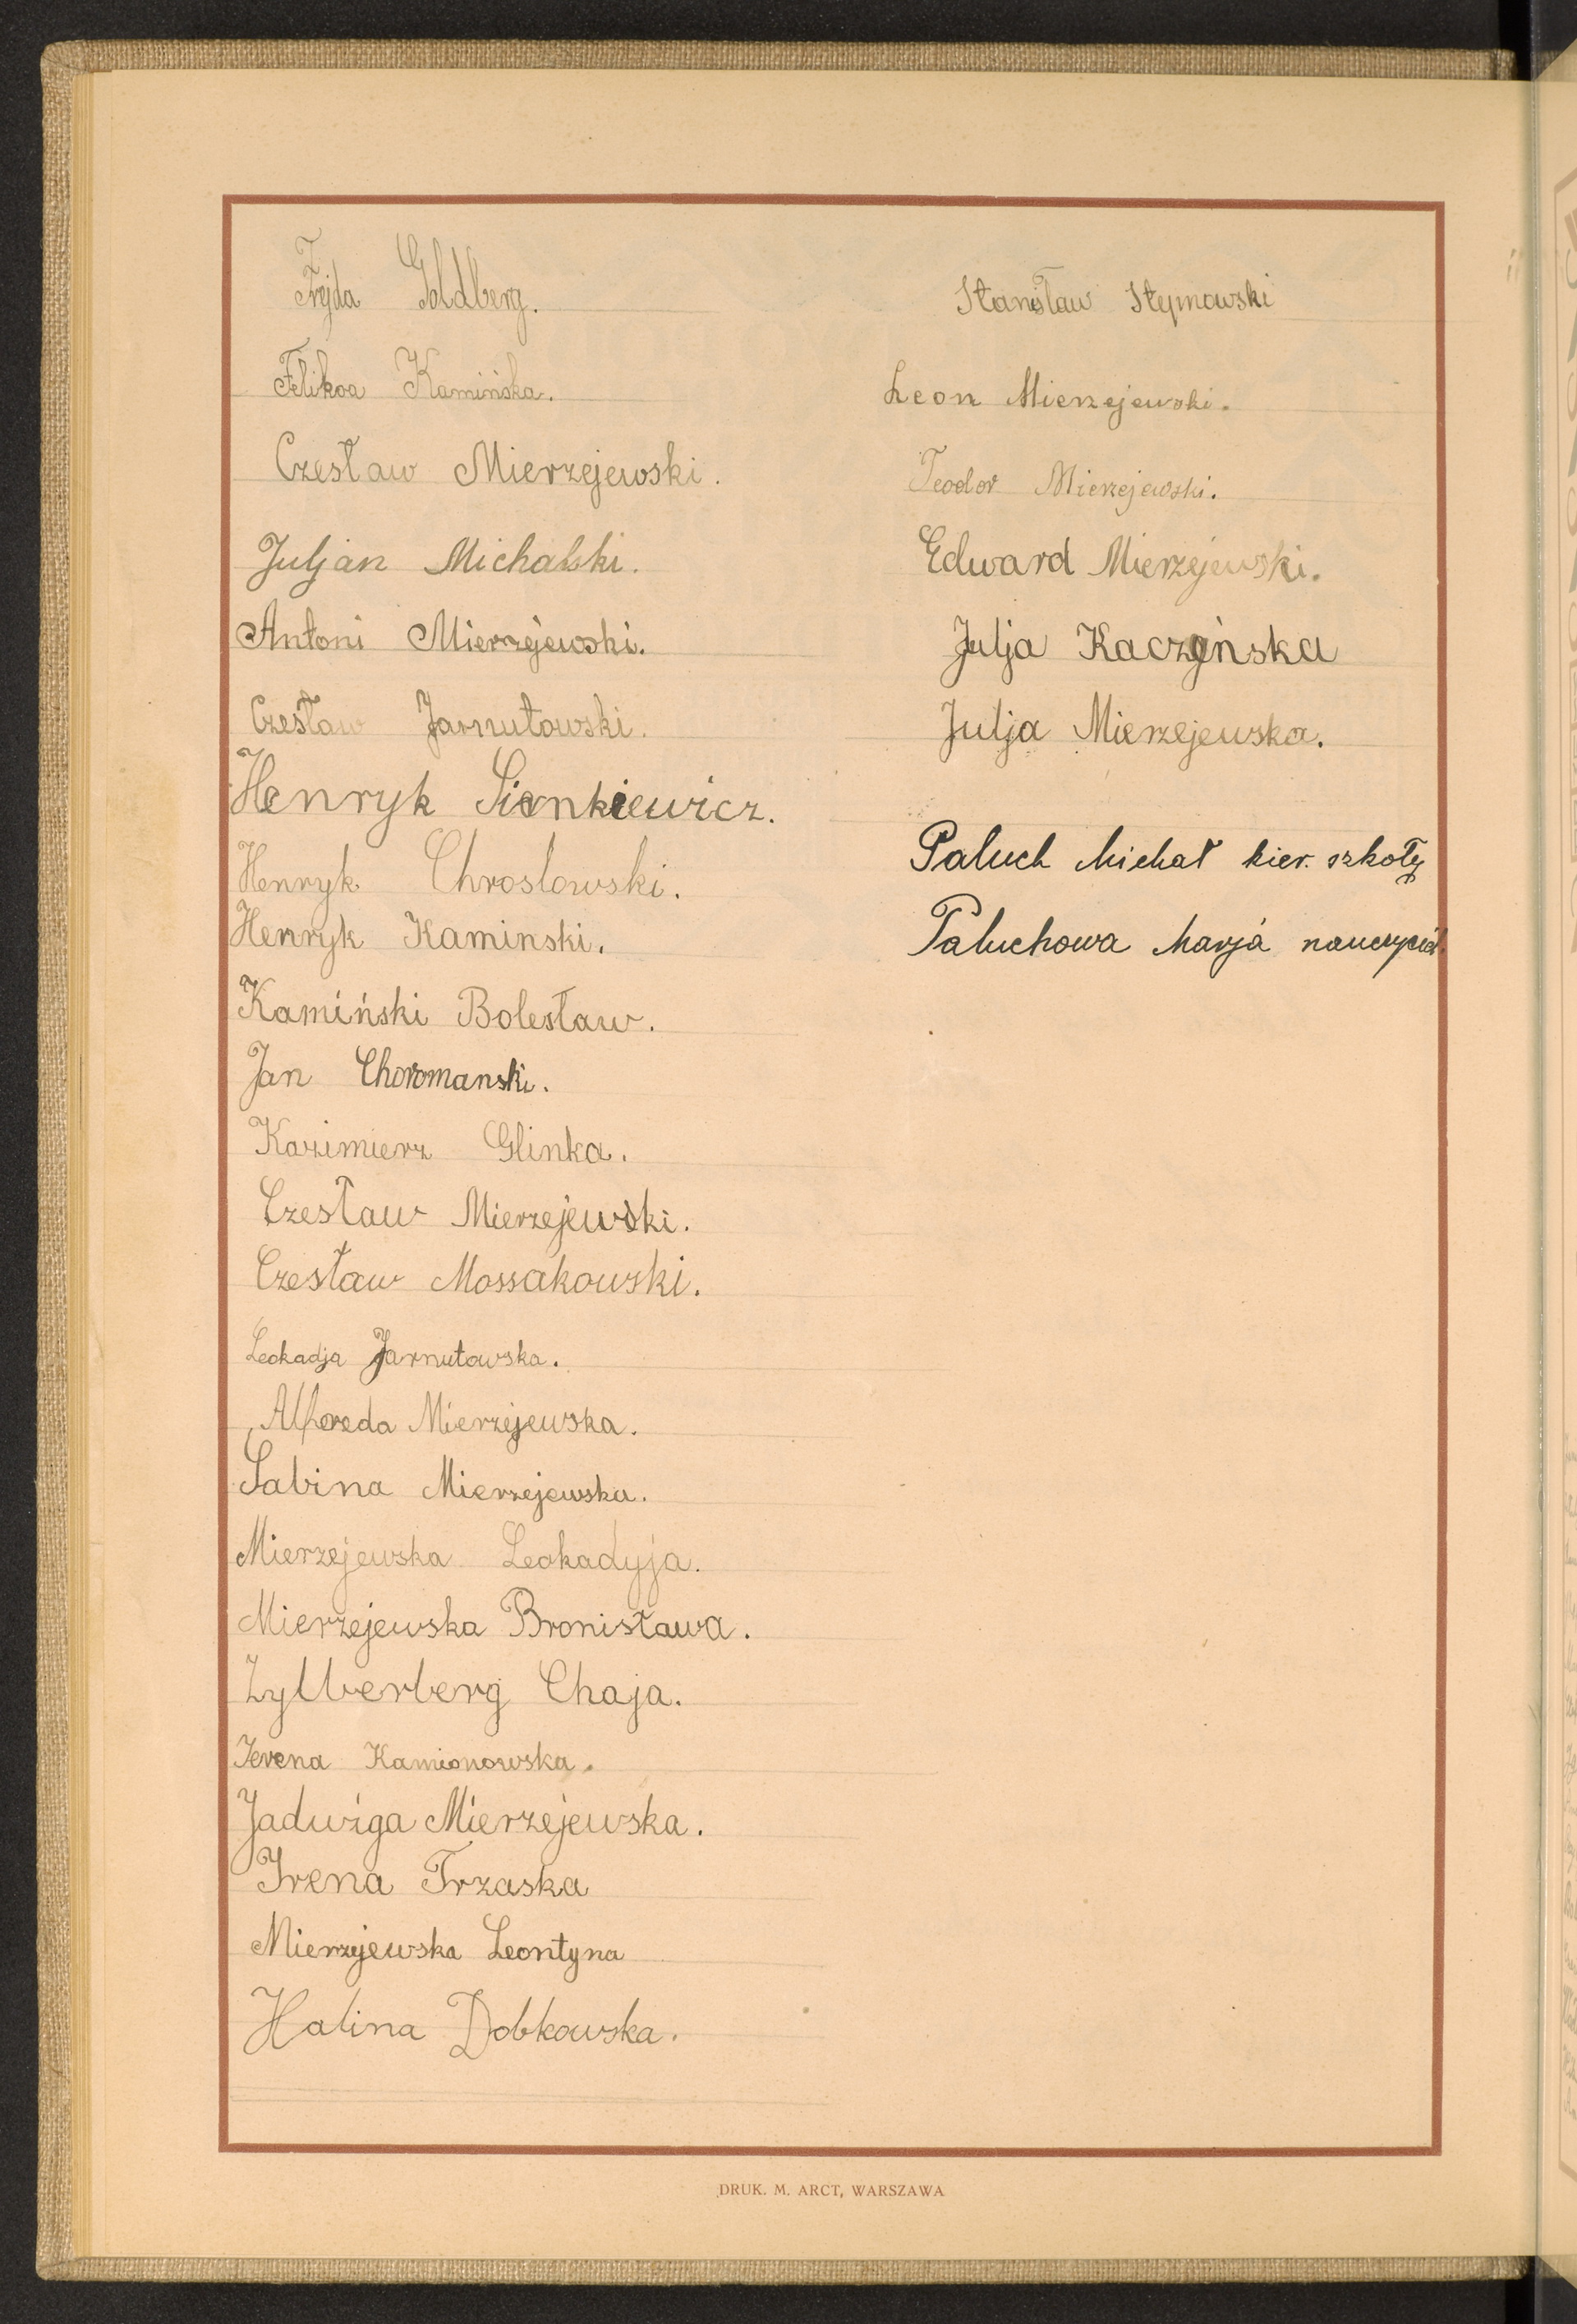 Frejda Goldberg.
Feliksa Kamińska.
Czesław Mierzejewski.
Juljan Michalski.
Antoni Mierzejewski.
Czesław Jarnutowski.
Henryk Sienkiewicz.
Henryk Chrostowski.
Henryk Kaminski.
Kamiński Bolesław.
Jan Choromanski.
Kazimierz Glinka.
Czesław Mierzejewski.
Czesław Mossakowski.
Leokadja Jarnutowska.
Alfreda Mierzejewska.
Sabina Mierzejewska.
Mierzejewska Leokadyja.
Mierzejewska Bronisława.
Zylberberg Chaja.
Irena Kamionowska.
Jadwiga Mierzejewska.
Irena Trzaska
Mierzejewska Leontyna
Halina Dobkowska.
Stanisław
Leon Mierzejewski.
Teodor Mierzejewski.
Edward Mierzejewski.
Julja Kaczyńska
Julja Mierzejewska.
Paluch Michał kier. szkoły
Paluchowa Marja nauczyciel.
DRUK. M. ARCT, WARSZAWA